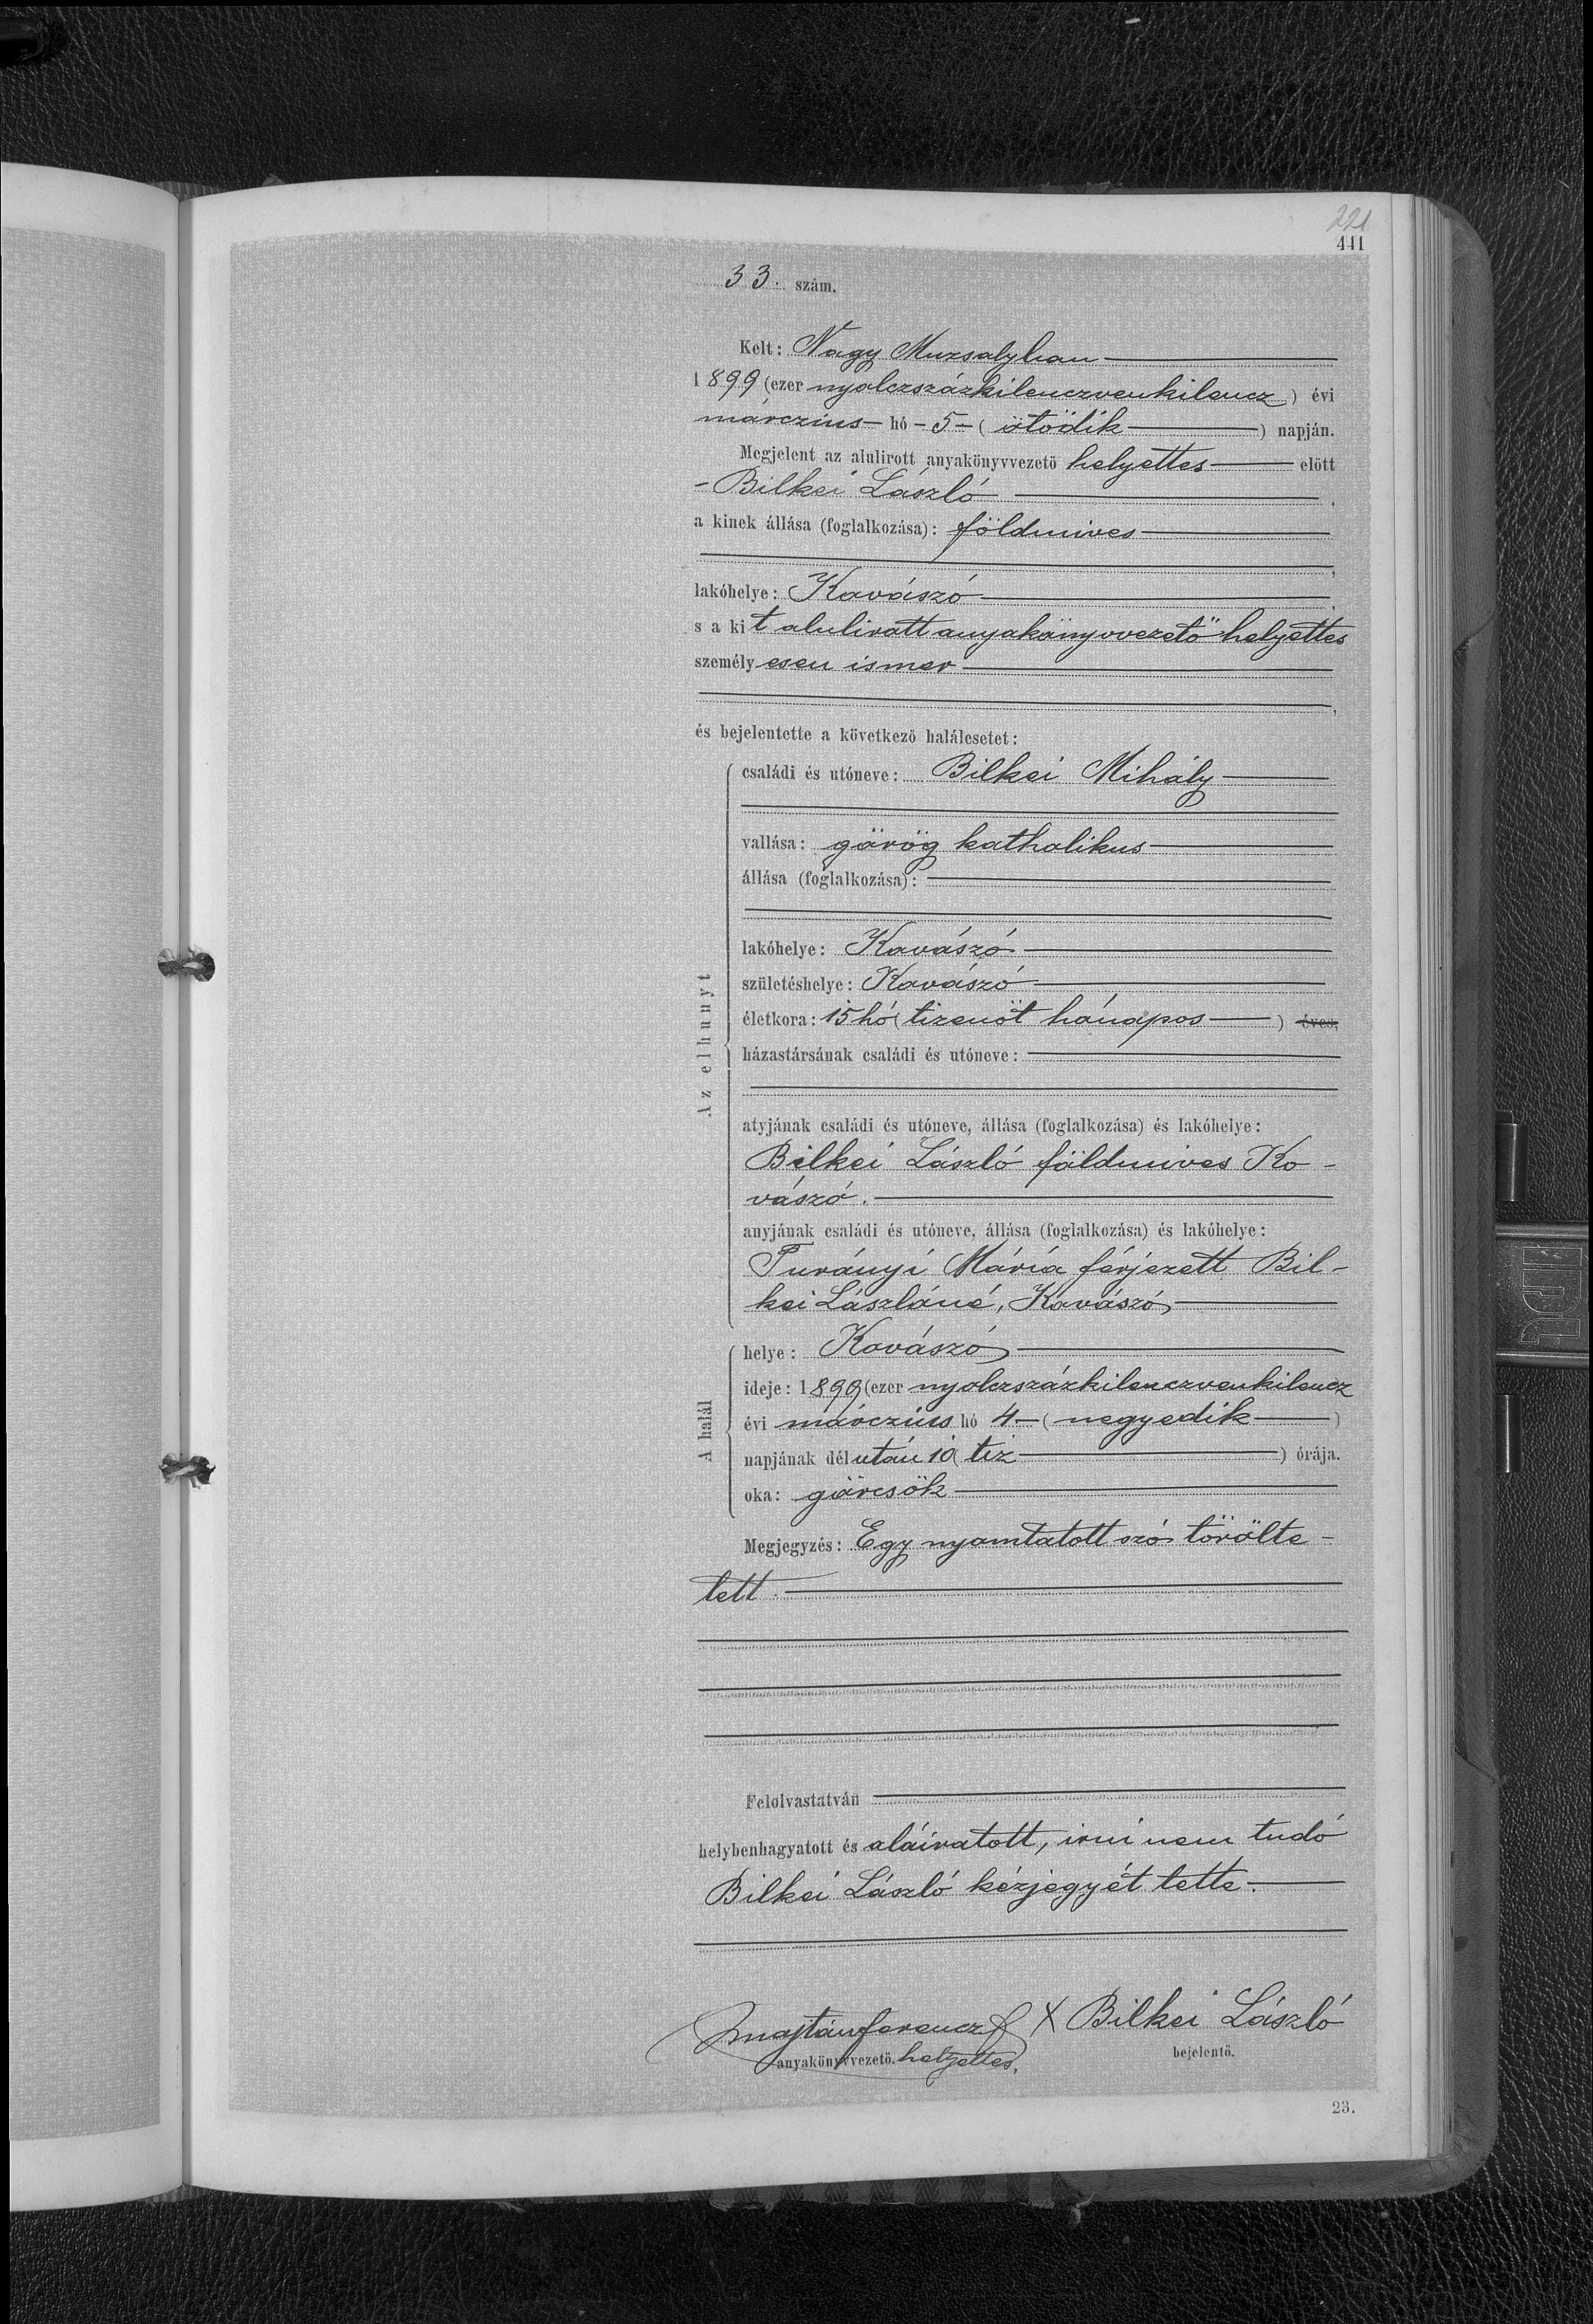 221
441
33. szám.
Kelt: Nagy Muzsalyban
1899 (ezer nyolczszázkilenczvenkilencz) évi
márczius hó - 5 - (ötödik) napján.
Megjelent az alulirott anyakönyvvezető helyettes előtt
- Bilkei László
a kinek állása (foglalkozása): földmives
lakóhelye: Kovászó
s a kit alulirott anyakönyvvezető helyettes
személyesen ismer
és bejelentette a következő halálesetet:
Az elhunyt
családi és utóneve: Bilkei Mihály
vallása: görög katholikus
állása (foglalkozása):
lakóhelye: Kovászó
születéshelye: Kovászó
életkora: 15 hó (tizenöt hónapos) éves,
házastársának családi és utóneve:
atyjának családi és utóneve, állása (foglalkozása) és lakóhelye:
Bilkei László földmives Ko-
vászó.
anyjának családi és utóneve, állása (foglalkozása) és lakóhelye:
Turányi Mária férjezett Bil-
kei Lászlóné, Kovászó
A halál
helye: Kovászó
ideje: 1899 (ezer nyolczszázkilenczvenkilencz
évi márczius hó 4 - (negyedik)
napjának délután 10 (tiz) órája.
oka: görcsök
Megjegyzés: Egy nyomtatott szó törölte-
tett.
Felolvastatván
helybenhagyatott és aláiratott, irni nem tudó
Bilkei László kézjegyét tette.
Majtán Ferencz X Bilkei László
anyakönyvvezető. helyettes. bejelentő.
23.